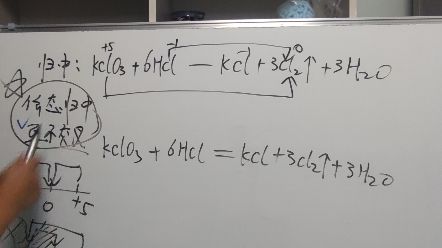 归中: KClO₃ + 6HCl — KCl + 3Cl₂↑ + 3H₂O
+5 -1 -1 0
价态归中
KClO₃ + 6HCl = KCl + 3Cl₂↑ + 3H₂O
0 +5